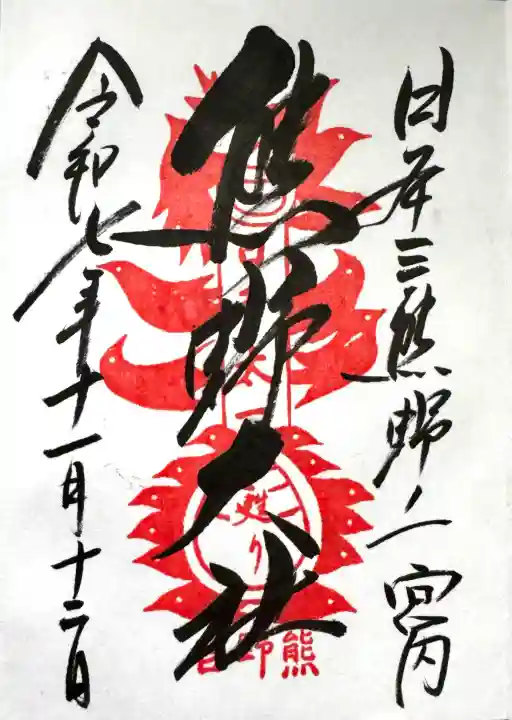 日本三熊野ノ一 宮内
熊野大社
令和七年十一月十二日
甦り
熊野